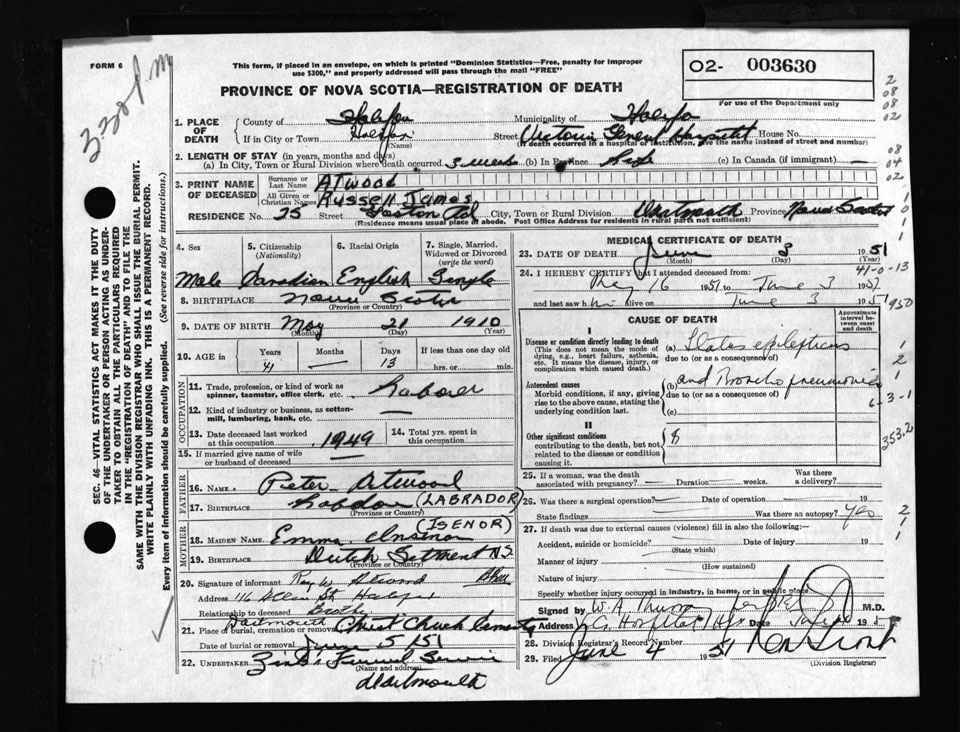 FORM 6
This form, if placed in an envelope, on which is printed "Dominion Statistics—Free, penalty for improper
use $300," and properly addressed will pass through the mail "FREE"
02- 003630
For use of the Department only
PROVINCE OF NOVA SCOTIA—REGISTRATION OF DEATH
1. PLACE OF DEATH
County of Halifax
Municipality of Halifax
If in City or Town Halifax
(Name)
Street Victoria General Hospital House No.
(If death occurred in a hospital or institution, give the name instead of street and number)
2. LENGTH OF STAY (in years, months and days)
(a) In City, Town or Rural Division where death occurred 3 weeks (b) In Province Life (c) In Canada (if immigrant) —
3. PRINT NAME OF DECEASED
Surname or Last Name Atwood
All Given or Christian Names Russell James
RESIDENCE No. 25 Street Gaston Rd City, Town or Rural Division Dartmouth Province Nova Scotia
(Residence means usual place of abode. Post Office Address for residents in rural parts not sufficient)
4. Sex
Male
5. Citizenship
(Nationality)
Canadian
6. Racial Origin
English
7. Single, Married, Widowed or Divorced
(write the word)
Single
8. BIRTHPLACE Nova Scotia
(Province or Country)
9. DATE OF BIRTH May 21 1910
(Month) (Day) (Year)
10. AGE in
Years Months Days
41 — 13
If less than one day old
hrs. or min.
OCCUPATION
11. Trade, profession, or kind of work as
spinner, teamster, office clerk, etc. Laborer
12. Kind of industry or business, as cotton-
mill, lumbering, bank, etc. —
13. Date deceased last worked
at this occupation 1949
14. Total yrs. spent in
this occupation
15. If married give name of wife
or husband of deceased —
FATHER
16. NAME Peter Atwood
17. BIRTHPLACE Labdor (LABRADOR)
(Province or Country)
MOTHER
(ISENOR)
18. MAIDEN NAME Emma
19. BIRTHPLACE Dutch Setment N.S.
(Province or Country)
20. Signature of informant Ray W. Atwood
Address 116 St. Halifax
Relationship to deceased Brother
Dartmouth
21. Place of burial, cremation or removal Christ Church Cemetery
Date of burial or removal June 5 1951
22. UNDERTAKER Funeral Service
(Name and address)
Dartmouth
MEDICAL CERTIFICATE OF DEATH
23. DATE OF DEATH June 3 1951
(Month) (Day) (Year)
41-0-13
24. I HEREBY CERTIFY that I attended deceased from
May 16 1951 to June 3 1951
and last saw him alive on June 3 1951
CAUSE OF DEATH
Approximate interval between onset and death
I
Disease or condition directly leading to death
(This does not mean the mode of dying, e.g., heart failure, asthenia, etc. It means the disease, injury, or complication which caused death.)
(a) Status epilepticus
due to (or as a consequence of)
Antecedent causes
Morbid conditions, if any, giving rise to the above cause, stating the underlying condition last.
(b) and Bronchopneumonia
due to (or as a consequence of)
(c)
6-3-1
II
Other significant conditions
contributing to the death, but not related to the disease or condition causing it.
353.2
25. If a woman, was the death
associated with pregnancy? — Duration — weeks. Was there a delivery? —
26. Was there a surgical operation? — Date of operation 19
State findings Was there an autopsy? Yes
27. If death was due to external causes (violence) fill in also the following:
Accident, suicide or homicide? Date of injury 19
(State which)
Manner of injury
(How sustained)
Nature of injury
Specify whether injury occurred in industry, in home, or in public place
Signed by W. A. M.D.
Address V. G. Hospital Hfx Date 1951
28. Division Registrar's Record Number
29. Filed June 4 1951
(Division Registrar)
SEC. 46—VITAL STATISTICS ACT MAKES IT THE DUTY
OF THE UNDERTAKER OR PERSON ACTING AS UNDER-
TAKER TO OBTAIN ALL THE PARTICULARS REQUIRED
IN THE "REGISTRATION OF DEATH" AND TO FILE THE
SAME WITH THE DIVISION REGISTRAR WHO SHALL ISSUE THE BURIAL PERMIT.
WRITE PLAINLY WITH UNFADING INK. THIS IS A PERMANENT RECORD.
Every item of information should be carefully supplied. (See reverse side for instructions.)
2
08
08
02
08
04
02
950